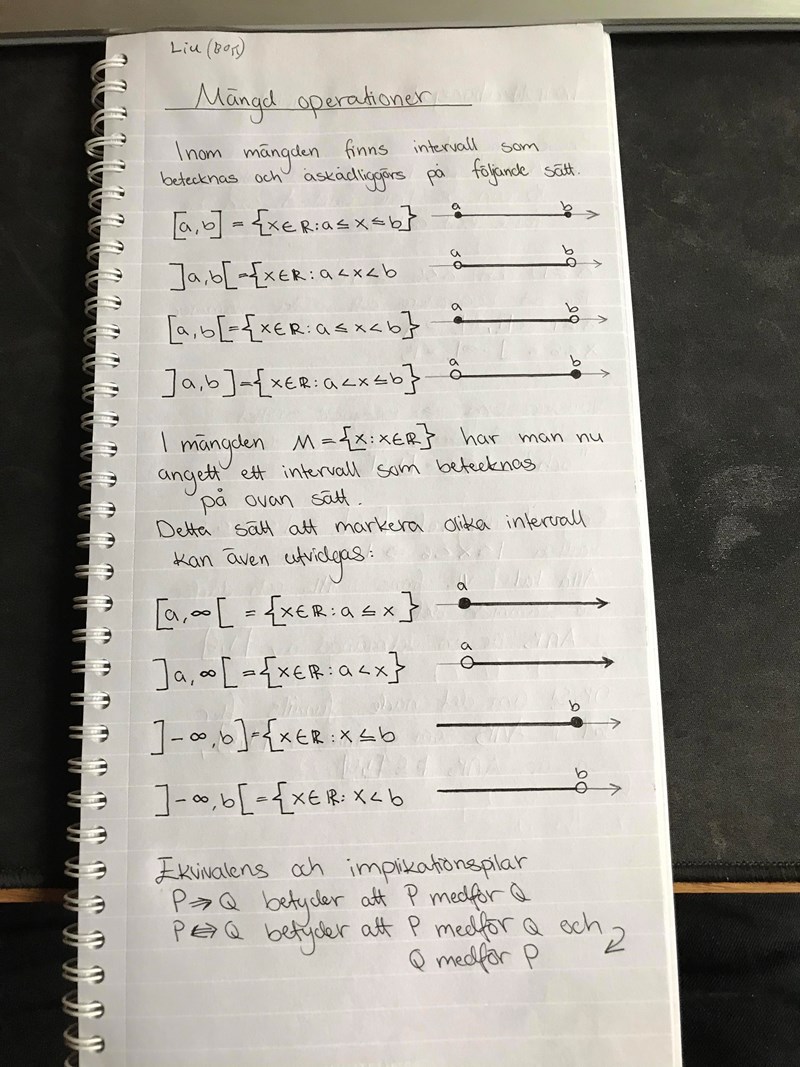 Liu
Mängd operationer
Inom mängden finns intervall som
betecknas och åskådliggörs på följande sätt.
[a,b] = {x∈ℝ: a ≤ x ≤ b} a b
]a,b[={x∈ℝ: a < x < b a b
[a,b[={x∈ℝ: a ≤ x < b} a b
]a,b]={x∈ℝ: a < x ≤ b} a b
I mängden M={x: x∈ℝ} har man nu
angett ett intervall som betecknas
på ovan sätt.
Detta sätt att markera olika intervall
kan även utvidgas:
[a,∞[ = {x∈ℝ: a ≤ x} a
]a,∞[={x∈ℝ: a < x} a
]-∞,b]={x∈ℝ: x ≤ b b
]-∞,b[={x∈ℝ: x < b b
Ekvivalens och implikationspilar
P⇒Q betyder att P medför Q
P⇔Q betyder att P medför Q och
Q medför P